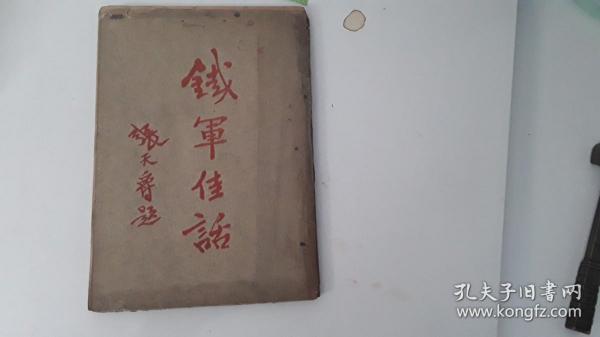 鐵軍佳話
張天爵題
孔夫子旧书网
www.kongfz.com